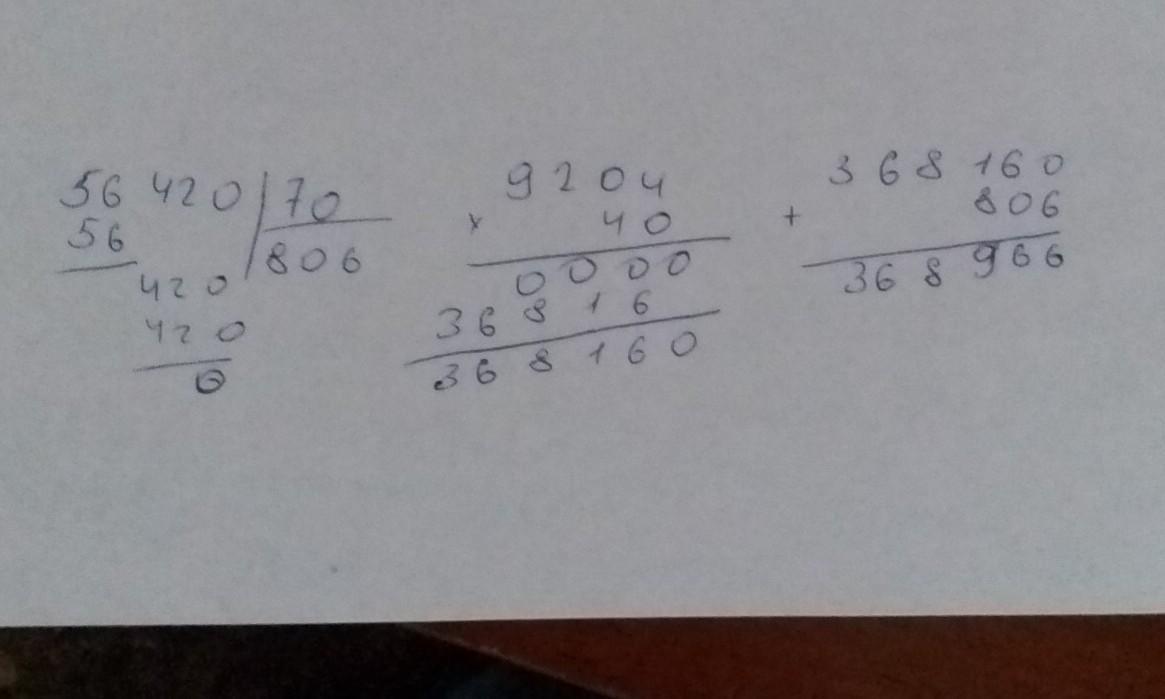 56 420 | 70
56
806
420
420
0
9204
× 40
0000
36816
368160
368 160
+ 806
368 966